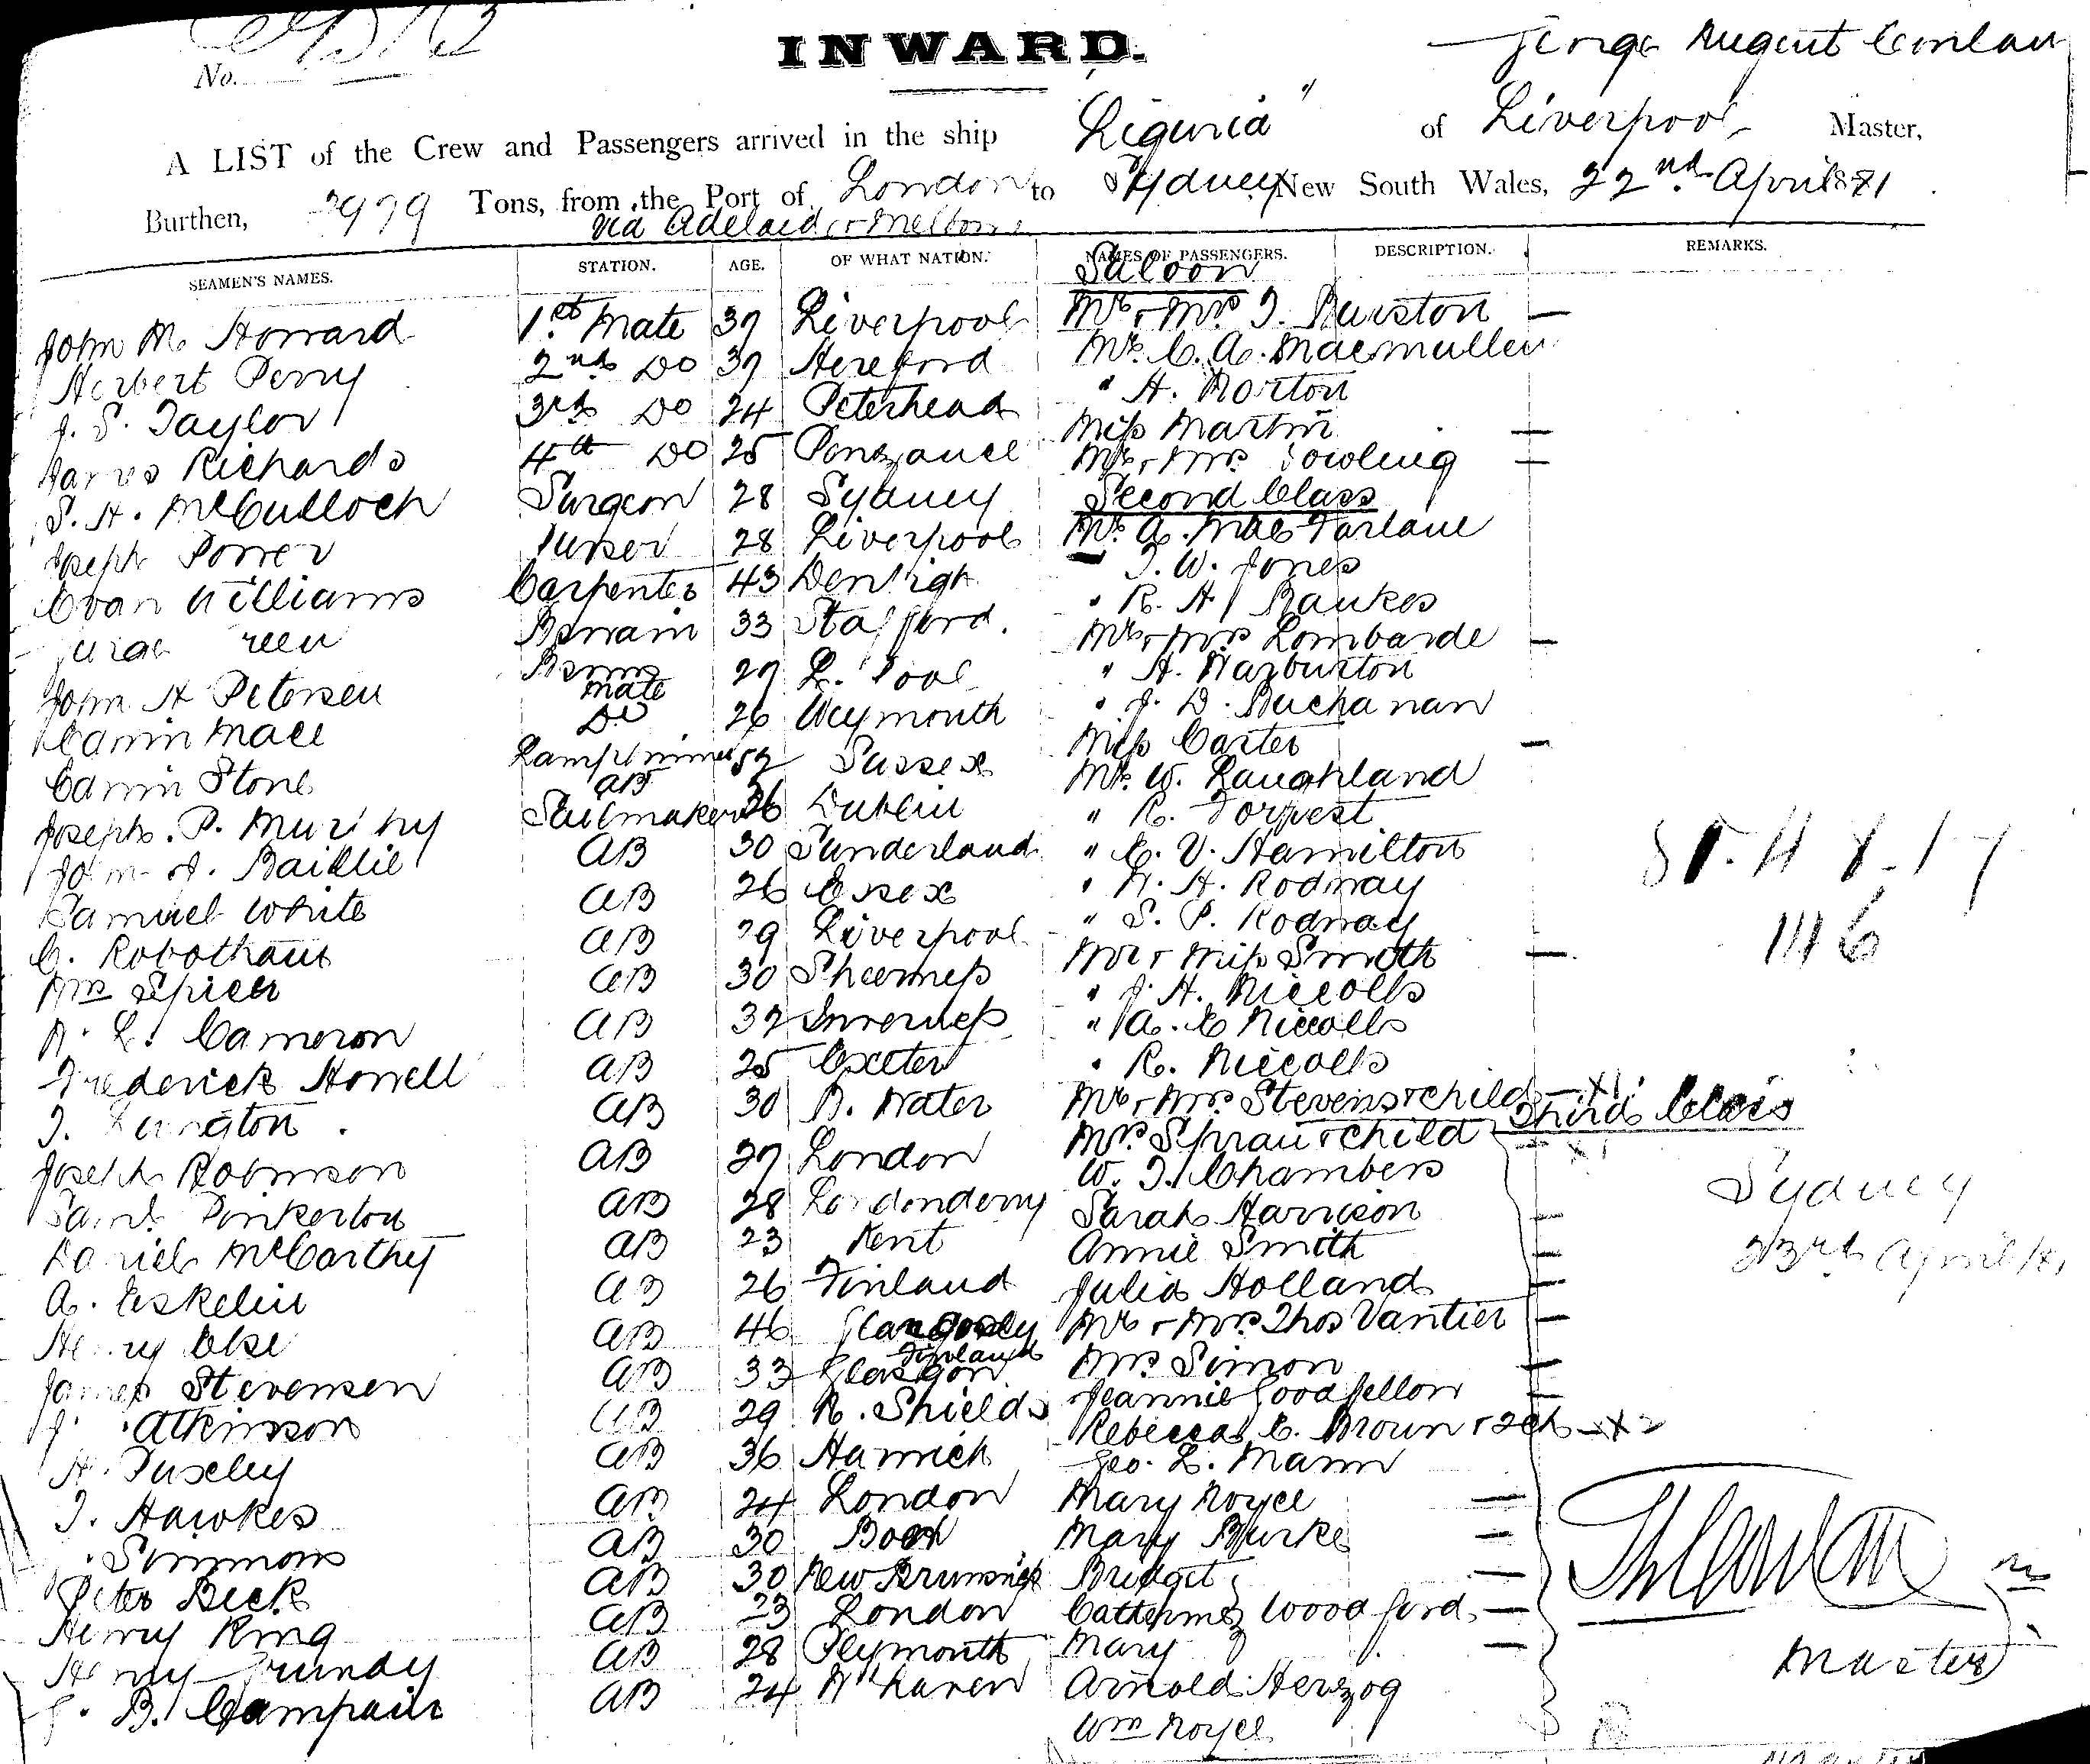 No.
INWARD.
George Nugent Conlan
A LIST of the Crew and Passengers arrived in the ship "Liguria" of Liverpool, Master,
Burthen, 2979 Tons, from the Port of London to Sydney New South Wales, 22nd April 1881
via Adelaide & Melbourne
SEAMEN'S NAMES. STATION. AGE. OF WHAT NATION. NAMES OF PASSENGERS. DESCRIPTION. REMARKS.
Saloon
John M. Howard 1st Mate 37 Liverpool Mr & Mrs T. Burston
Herbert Perry 2nd Do 37 Hereford Mr. C. A. Macmullen
J. S. Taylor 3rd Do 24 Peterhead " H. Norton
James Richards 4th Do 25 Penzance Miss Martin
S. H. McCulloch Surgeon 28 Sydney Mr & Mrs Dowling
Second Class
Joseph Power Purser 28 Liverpool Mr. A. MacFarlane
Evan Williams Carpenter 43 Denbigh " T. W. Jones
Boswain 33 Stafford. " R. H. Baukes
John H Petersen Bosns Mate 27 L. Pool Mr & Mrs Lombarde
" H. Warburton
Edwin Mace Do 26 Weymouth " J. D. Buchanan
Edwin Stone Lamptrimmer AB 52 Sussex Miss Carter
Mr. W. Laughland
Joseph. P. Murphy Sailmaker 36 Dublin " R. Forrest
John J. Baillie AB 30 Sunderland " E. V. Hamilton
Samuel White AB 26 Essex " N. H. Rodway
C. Robotham AB 29 Liverpool " S. P. Rodway
Wm Spicer AB 30 Sheerness Mr & Miss Smith
" J. H. Niccolls
N. L. Cameron AB 37 Inverness " A. E Niccolls
Frederick Howell AB 25 Exeter " R. Niccolls
T. AB 30 B. Water Mr & Mrs Stevens & child
Third Class
Mrs Sprau & child
Joseph Robinson AB 27 London W. T. Chambers
Saml. Pinkerton AB 28 Londonderry Sarah Harrison
Daniel McCarthy AB 23 Kent Annie Smith
A. Eskelin AB 26 Finland Julia Holland
Henry Else AB 46 Mr & Mrs Thos Vantier
Finland
James Stevensen AB 33 Glasgow Mrs Simon
Jeannie Goodfellow
J. Atkinson AB 29 N. Shields Rebecca C. Brown & 2 ch
H. Puxley AB 36 Harwich Geo. L. Mann
T. Hawkes AB 24 London Mary Noyce
Simmons AB 30 Mary Burke
Peter Beck AB 30 New Brunswick Bridget
Henry King AB 23 London Catherine Woodford
Henry Grundy AB 28 Plymouth Mary
B. Campain AB 24 Whaven Arnold Herzog
Wm Noyce
146
Sydney
23rd April 81
Master